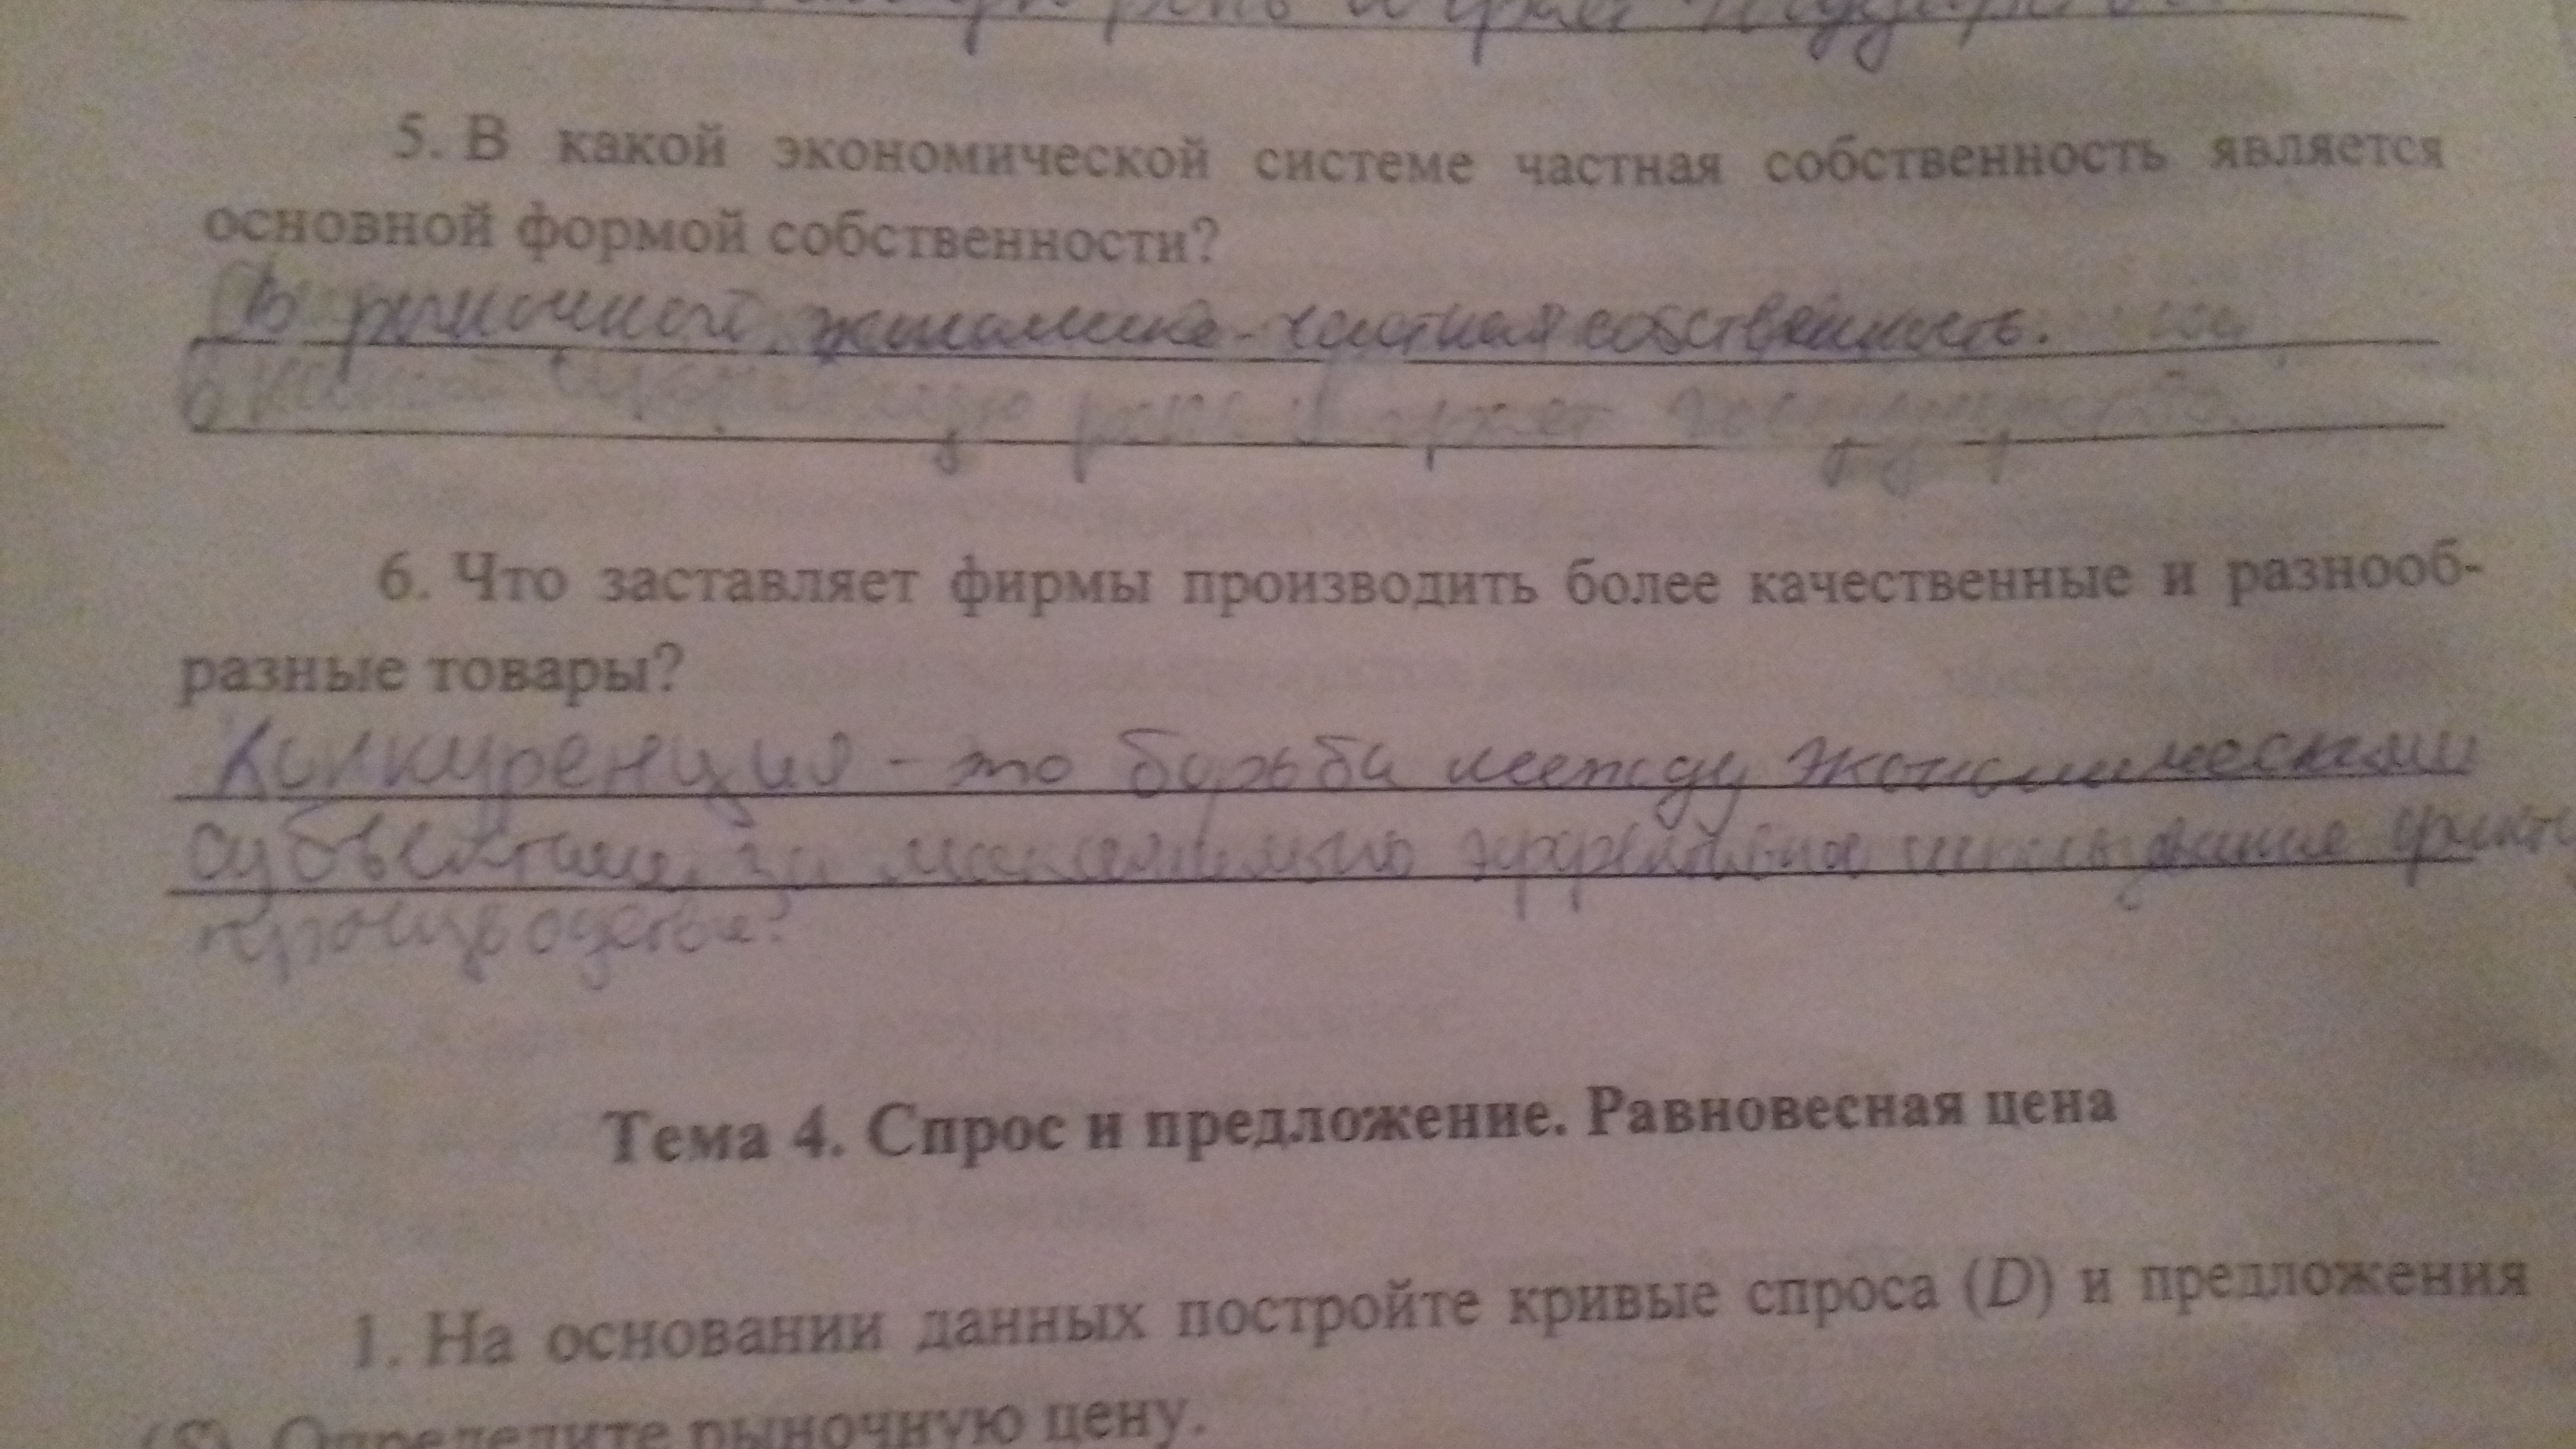 5. В какой экономической системе частная собственность является
основной формой собственности?
В рыночной экономике - частная собственность.
роль играет государство.
6. Что заставляет фирмы производить более качественные и разнооб-
разные товары?
Конкуренция - это борьба между экономическими
субъектами за максимально эффективное использование факт
производства?
Тема 4. Спрос и предложение. Равновесная цена
1. На основании данных постройте кривые спроса (D) и предложения
(S). Определите рыночную цену.